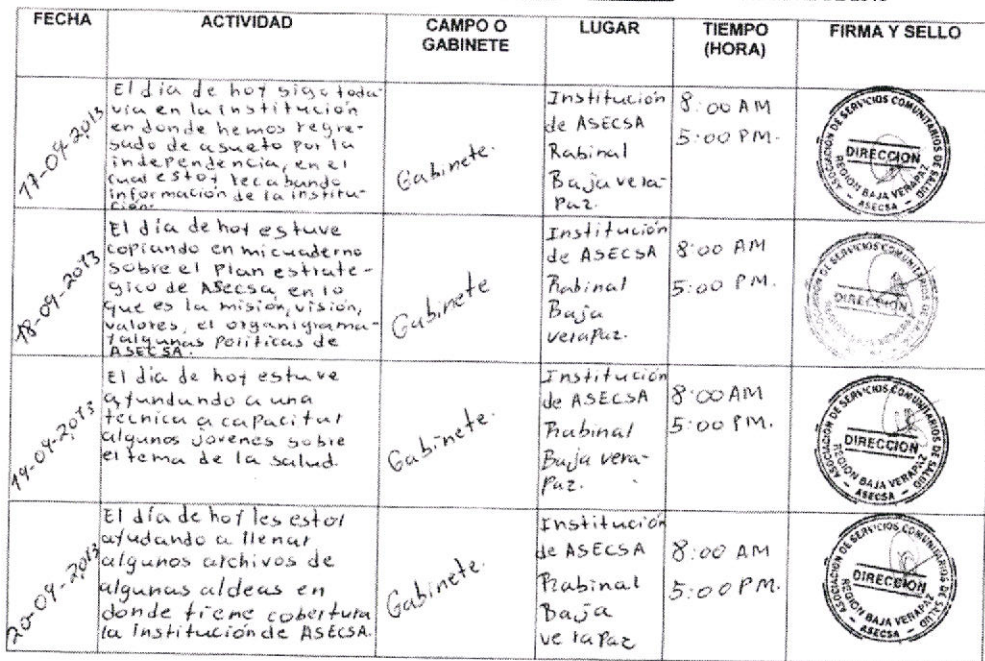 FECHA ACTIVIDAD CAMPO O GABINETE LUGAR TIEMPO (HORA) FIRMA Y SELLO
17-09-2013
El día de hoy sigo toda-
vía en la institución
en donde hemos regre-
sado de asueto por la
independencia, en el
cual estoy recabando
información de la institu-
ción.
Gabinete.
Institución
de ASECSA
Rabinal
Baja vera-
Paz.
8:00 AM
5:00 PM.
ASOCIACIÓN DE SERVICIOS COMUNITARIOS DE SALUD
DIRECCION
REGION BAJA VERAPAZ
- ASECSA -
18-09-2013
El día de hoy estuve
copiando en mi cuaderno
sobre el Plan estrate-
gico de Asecsa, en lo
que es la misión, visión,
valores, el organigrama
y algunas políticas de
ASECSA.
Gabinete
Institución
de ASECSA
Rabinal
Baja
veraPaz.
8:00 AM
5:00 PM.
ASOCIACIÓN DE SERVICIOS COMUNITARIOS DE SALUD
DIRECCION
REGION BAJA VERAPAZ
- ASECSA -
19-09-2013
El día de hoy estuve
ayundando a una
tecnica a capacitar
algunos jovenes sobre
el tema de la salud.
Gabinete.
Institución
de ASECSA
Rabinal
Baja vera-
Paz.
8:00 AM
5:00 PM.
ASOCIACIÓN DE SERVICIOS COMUNITARIOS DE SALUD
DIRECCION
REGION BAJA VERAPAZ
- ASECSA -
20-09-2013
El día de hoy les estoy
ayudando a llenar
algunos archivos de
algunas aldeas en
donde tiene cobertura
la Institución de ASECSA.
Gabinete.
Institución
de ASECSA
Rabinal
Baja
veraPaz
8:00 AM
5:00 PM.
ASOCIACIÓN DE SERVICIOS COMUNITARIOS DE SALUD
DIRECCION
REGION BAJA VERAPAZ
- ASECSA -